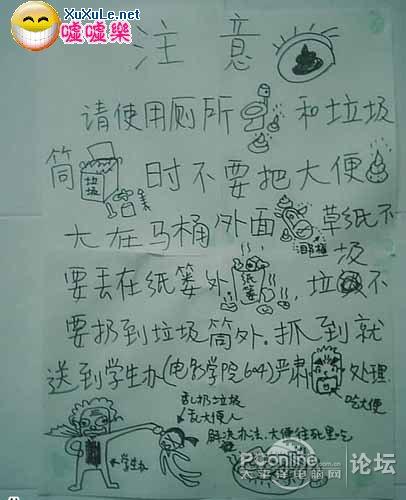 XuXuLe.net
嘘嘘樂
注意
请使用厕所和垃圾
筒时不要把大便
垃圾
大在马桶外面草纸不
马桶
要丢在纸篓外,垃圾不
纸篓
要扔到垃圾筒外.抓到就
送到学生办(电影学院604)严肃处理.
吃大便
乱扔垃圾
乱大便人
解决办法:大便往死里吃
学生办
PConline
太平洋电脑网
论坛